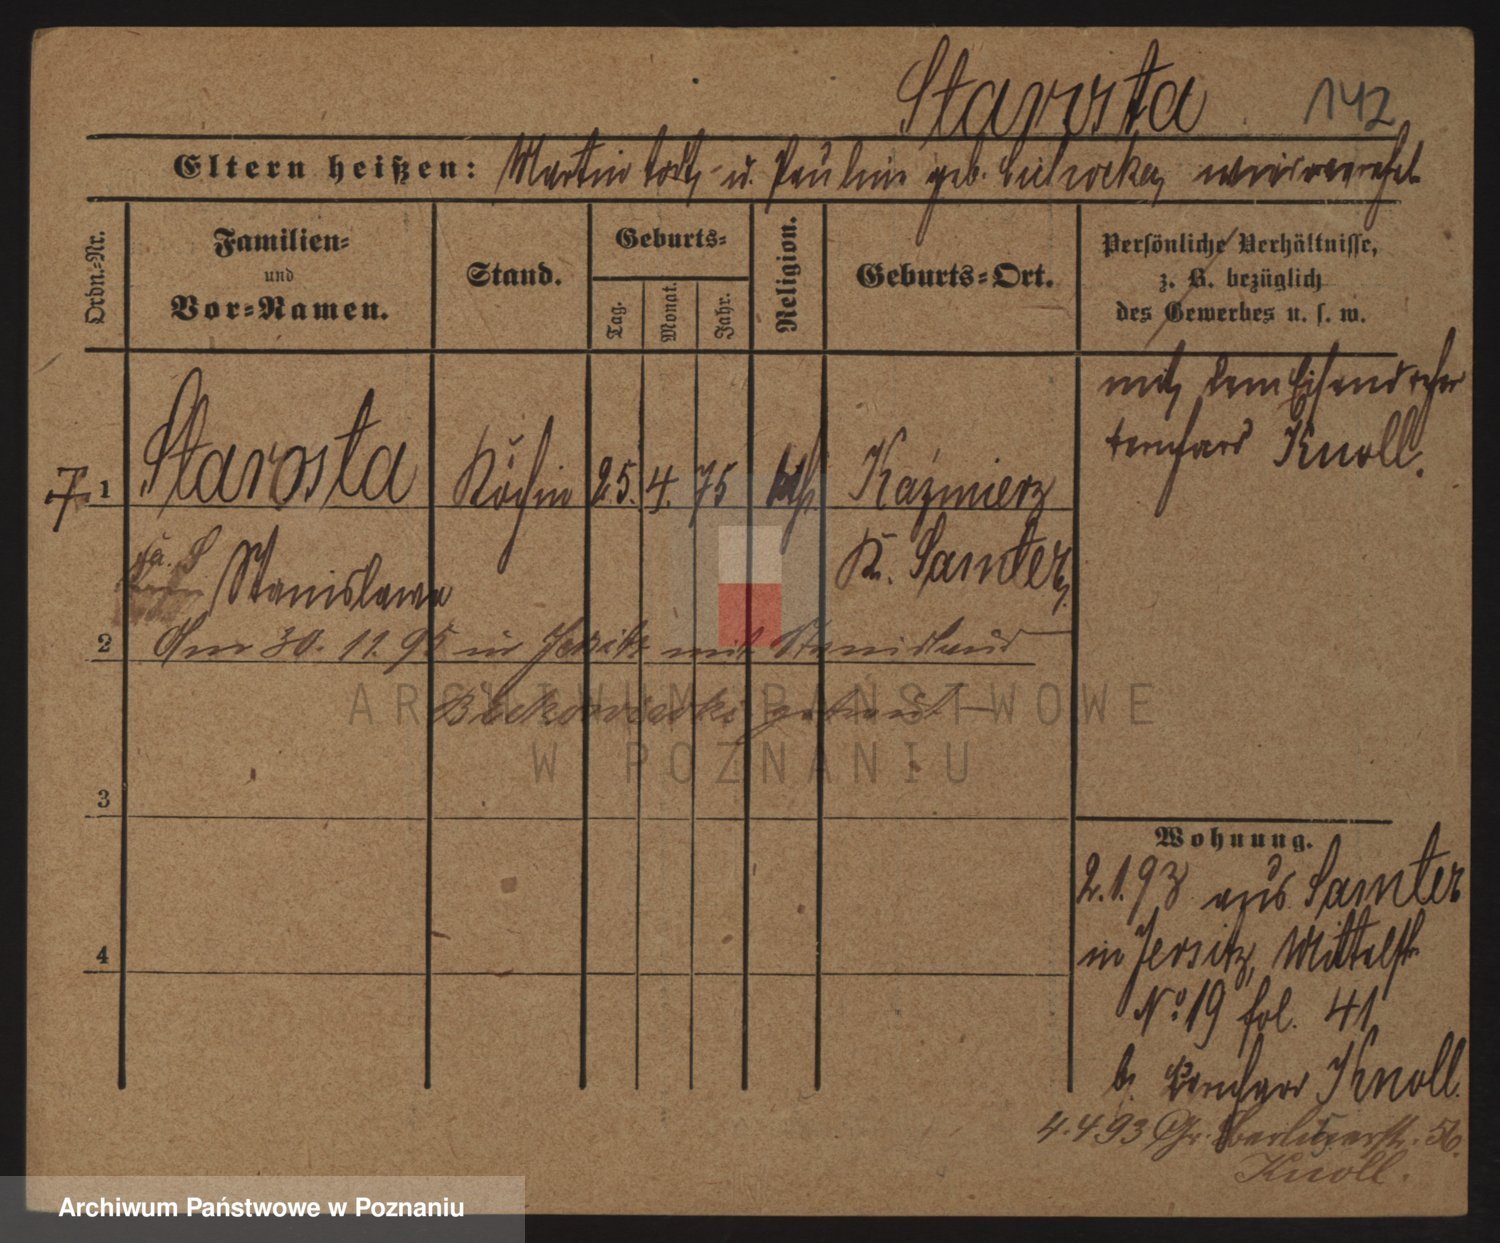 Starosta 142
Eltern heißen: Martin todt, u. Pauline geb.
Ordn.-Nr.
Familien-
und
Vor-Namen.
Stand.
Geburts-
Tag.
Monat.
Jahr.
Religion.
Geburts-Ort.
Persönliche Verhältnisse,
z. B. bezüglich
des Gewerbes u. s. w.
mit dem
Knoll.
1 Starosta Köchin 25. 4. 75 kth. Kaźmierz
Stanislawa K. Samter,
2 Am 30. 11. 95 in Jersitz mit Stanislaus
getraut.
3
4
Wohnung.
2.1.93 aus Samter
in Jersitz, Mittelstr.
No 19 fol. 41
b. Bernhard Knoll.
4.4.93 Gr. Berlinerstr. 56.
Knoll.
ARCHIWUM PAŃSTWOWE
W POZNANIU
Archiwum Państwowe w Poznaniu